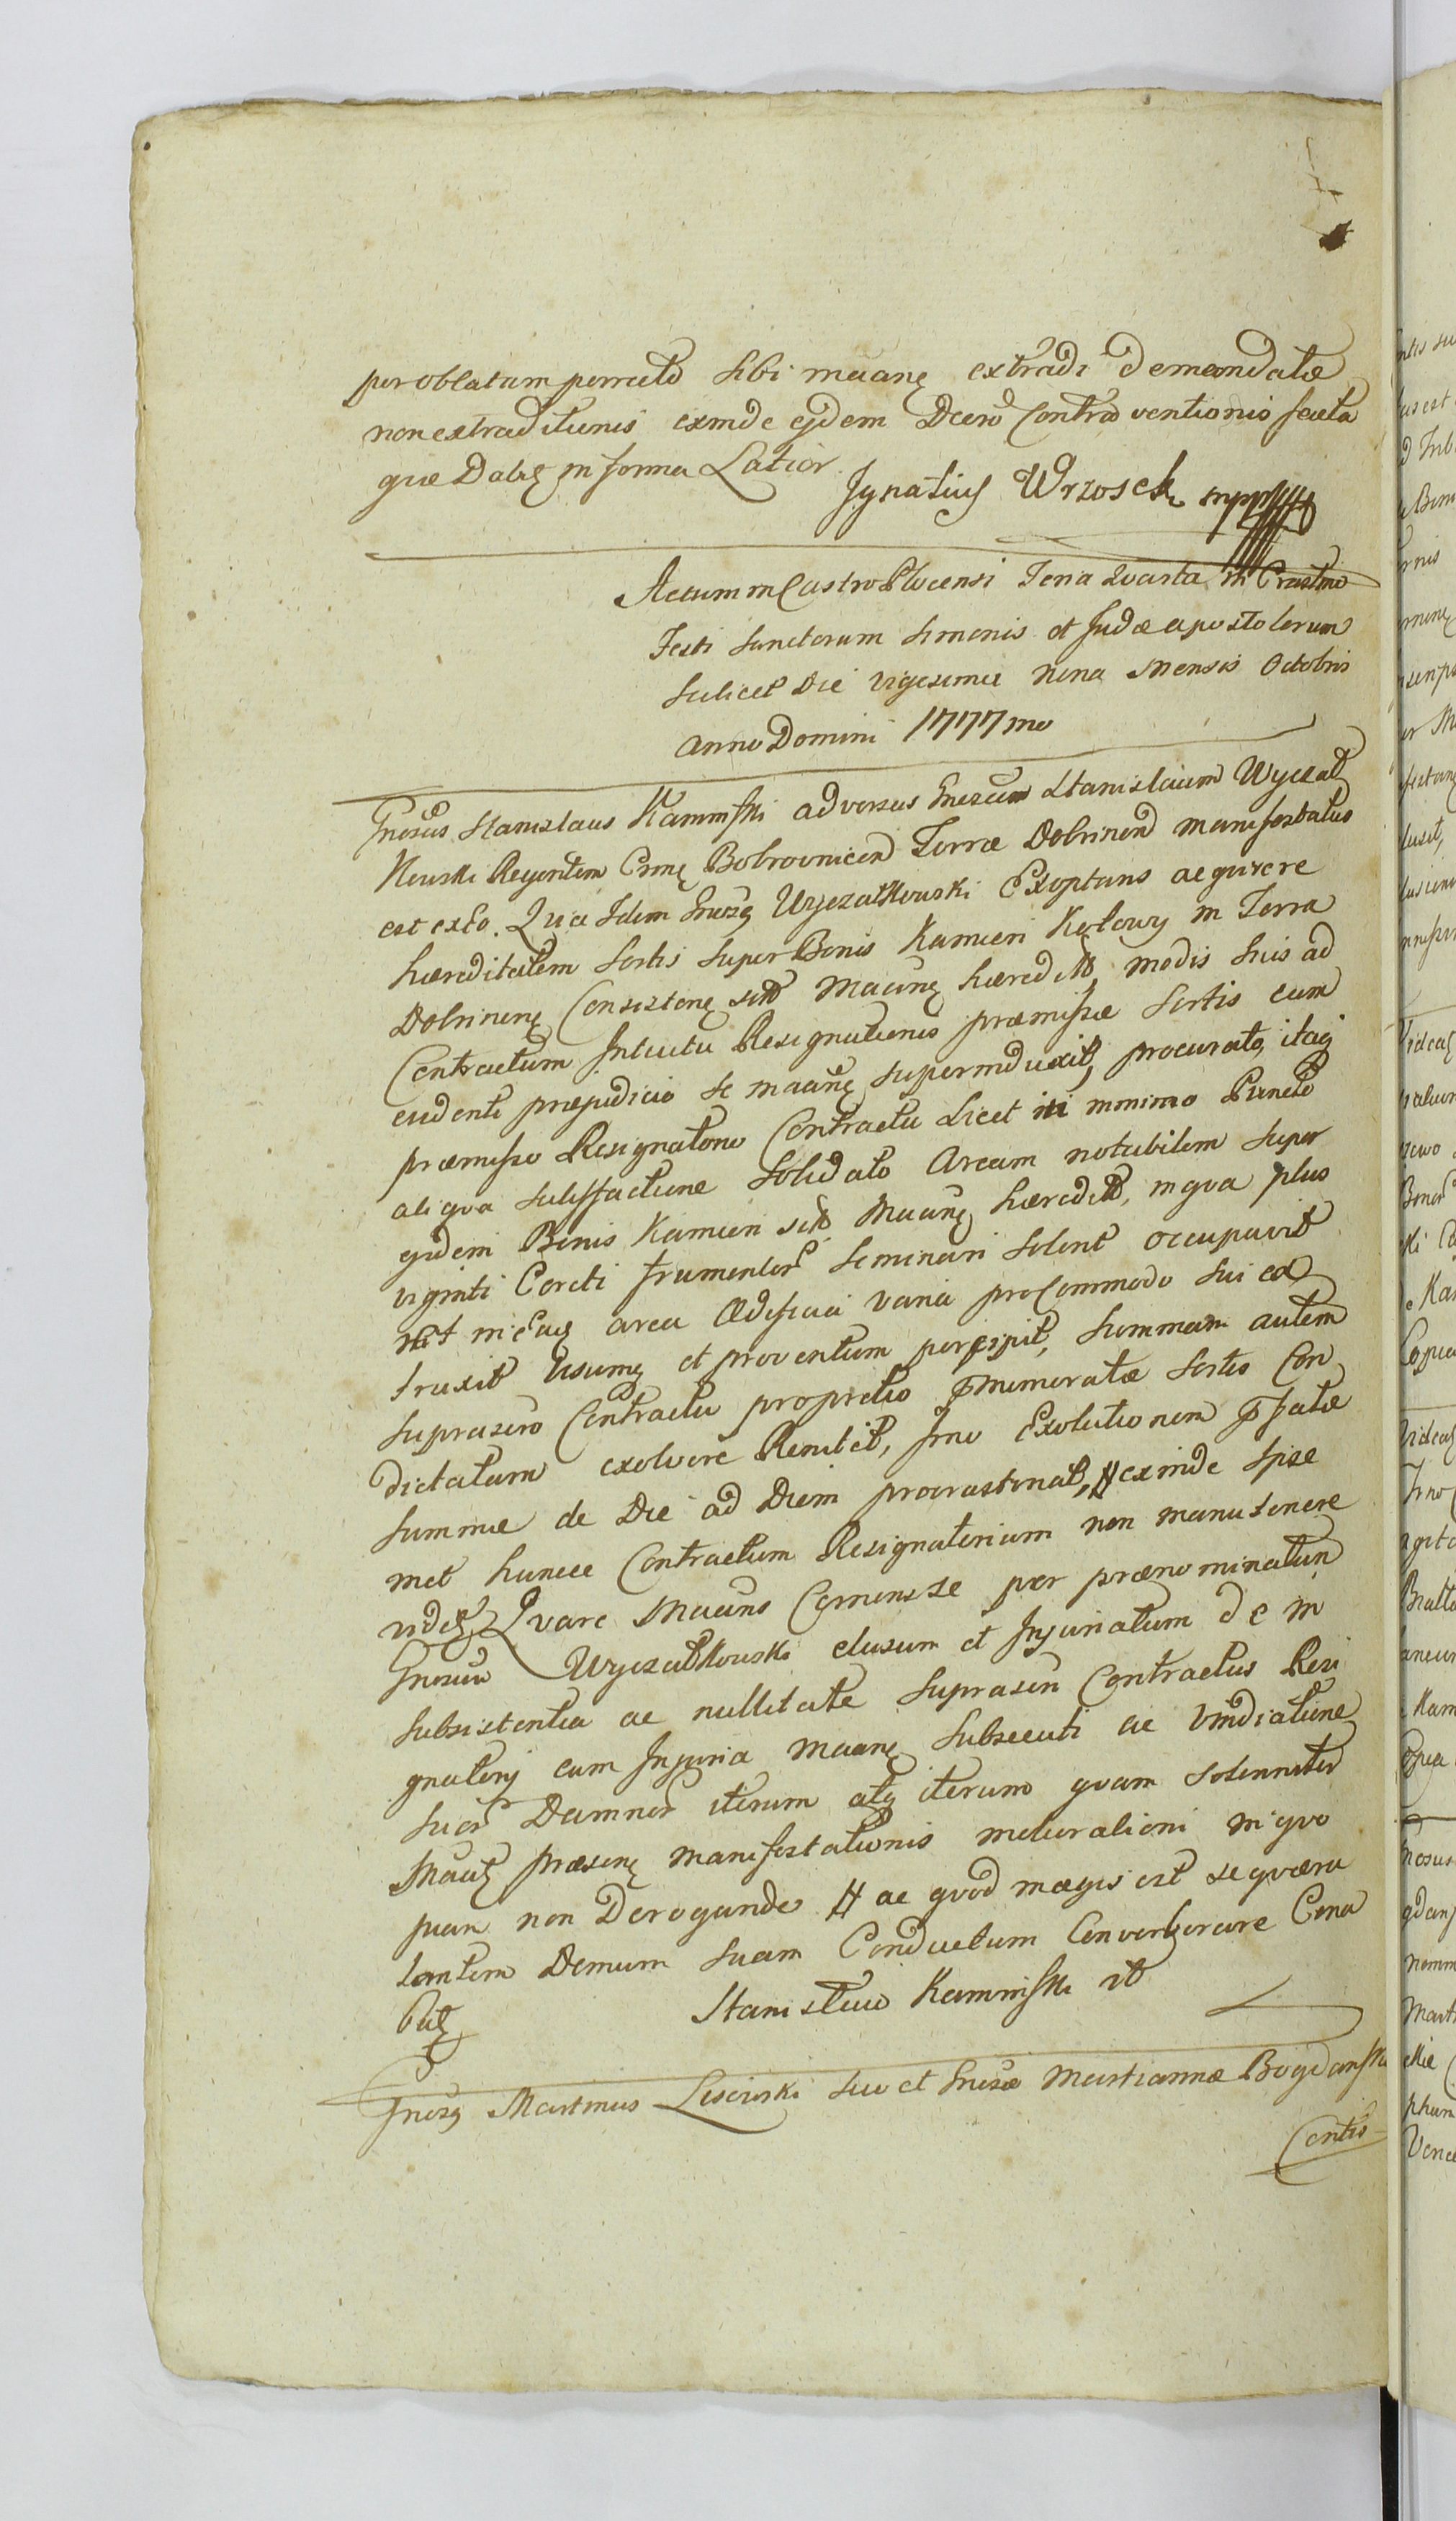 per oblatam porrecto sibi mãanę extradi demandatæ
non extraditionis exinde ejdem Dcero Contraventionis secuta
quæ Dabitę in forma Latior.
Ignatius Wrzosek mpp
Actum in Castro Plocensi Feria Quarta in Crastino
Festi Sanctorum Simonis et Judæ apostolorum
scilicet Die vigesima nona Mensis Octobris
anno Domini 1777mo
Gnosus Stanislaus Kaminski adversus Gnosum Stanislaum Wyczał
kowski Regentem Crnę Bobrovnicen Terræ Dobrinen manifestatus
est exto. Quia Idem Gnosę Wyczałkowski Exoptans acquirere
hæreditatem Sortis super Bonis Kamien Kotowy in Terra
Dobrinenę Consistenę sitto Mãanę hæreditto, modis suis ad
Contractum Intuitu Resignationis præmissæ Sortis cum
evidenti præjudicio se mãanę superinduxit, procurato, itaq
præmisso Resignationo Contractu Licet in minimo Puncto
aliqua satisfactione solidato Aream notabilem super
ejdem Bonis Kamien sitto Mãanę hæreditto, in qua plus
viginti Coreti frumentor seminari solent occupavit
in eaq area Ædificia varia pro Commodo sui ex
truxit Usumę et proventum percipit, Summam autem
suprascro Contractu pro pretio pmemoratæ Sortis Con
dictatam exolvere Renitet, Imo Exolutionem pfatæ
summæ de Die ad Diem procrastinat, # exinde Ipse
met huncce Contractum Resignatorium non manutenere
videtę, Quare Mãans Cernens se per prænominatum
Gnosum Wyczałkowski elusum et Injuriatum de in
subsistentia ac nullitate suprascn Contractus Resi
gnatorij cum Injuria mãanę Subsecuti ac Vindicatione
suor Damnor iterum atq iterum quam solenniter
Mãatę præsenę manifestationis meliorationi in quo
piam non Derogando # ac quod magis est se quæru
lantem Demum suam Conductum Converberare Cona
batę
Stanisław Kaminski ut
Gnosę Martinus Lisciński suo et Gnosæ Marianna Bogdanska
Contis